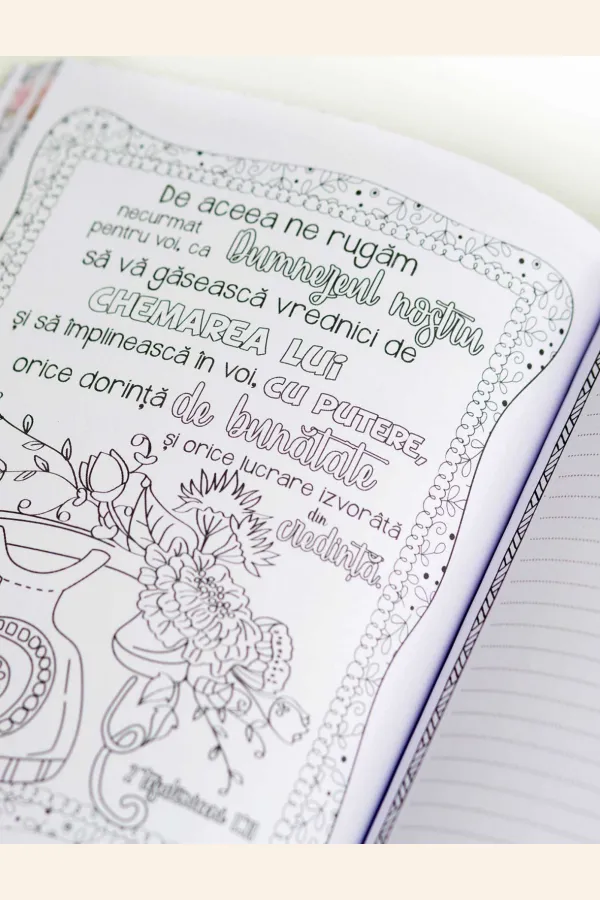 De aceea ne rugăm
necurmat
pentru voi, ca Dumnezeul nostru
să vă găsească vrednici de
CHEMAREA LUi
și să împlinească în voi, CU PUTERE,
orice dorință de bunătate
și orice lucrare izvorâtă
din
credință.